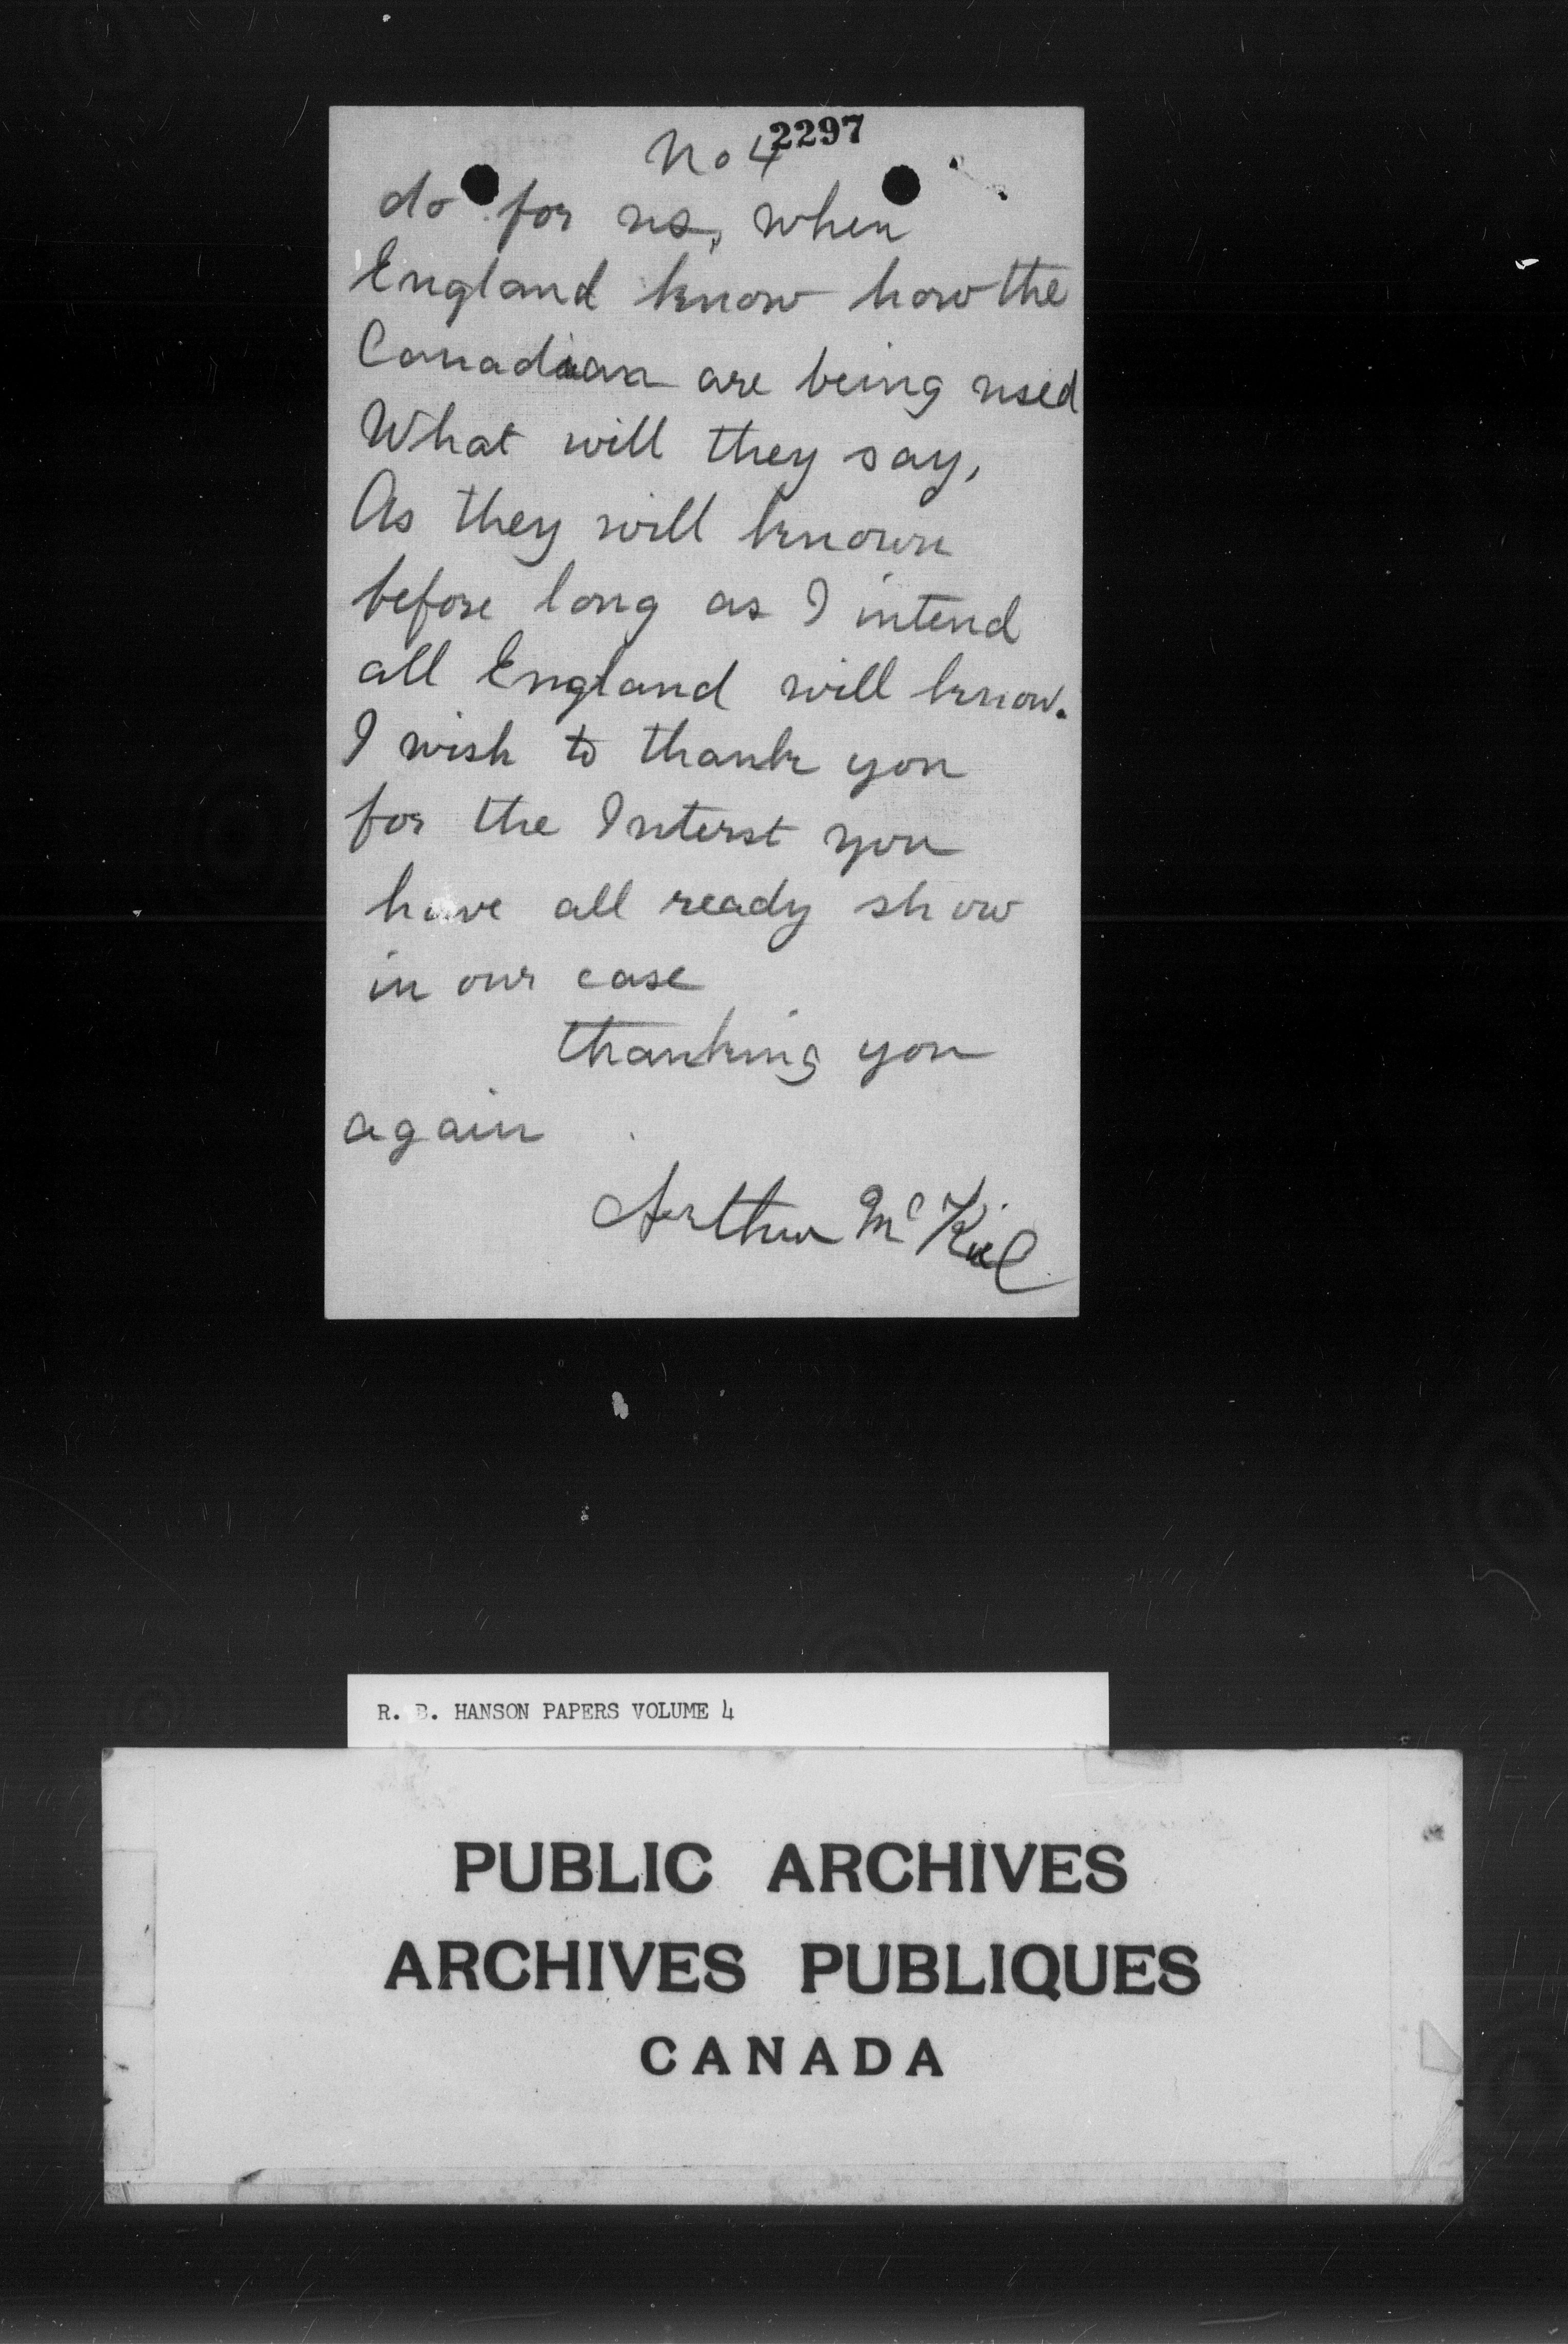 2297
No 4
do for us, when
England know how the
Canadian are being used
What will they say,
As they will known
before long as I intend
all England will know.
I wish to thank you
for the Interst you
have all ready show
in our case
thanking you
again
Arthur McKiel
R. B. HANSON PAPERS VOLUME 4
PUBLIC ARCHIVES
ARCHIVES PUBLIQUES
CANADA